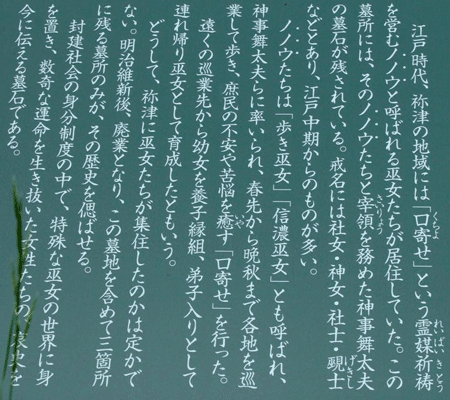 江戸時代、祢津の地域には「口寄せ」という霊媒祈祷
を営むノノウと呼ばれる巫女たちが居住していた。この
墓所には、そのノノウたちと宰領を務めた神事舞太夫
の墓石が残されている。戒名には社女・神女・社士・覡士
などとあり、江戸中期からのものが多い。
ノノウたちは「歩き巫女」「信濃巫女」とも呼ばれ、
神事舞太夫らに率いられ、春先から晩秋まで各地を巡
業して歩き、庶民の不安や苦悩を癒す「口寄せ」を行った。
遠くの巡業先から幼女を養子縁組、弟子入りとして
連れ帰り巫女として育成したともいう。
どうして、祢津に巫女たちが集住したのかは定かで
ない。明治維新後、廃業となり、この墓地を含めて三箇所
に残る墓所のみが、その歴史を偲ばせる。
封建社会の身分制度の中で、特殊な巫女の世界に身
を置き、数奇な運命を生き抜いた女性たちの、哀史を
今に伝える墓石である。